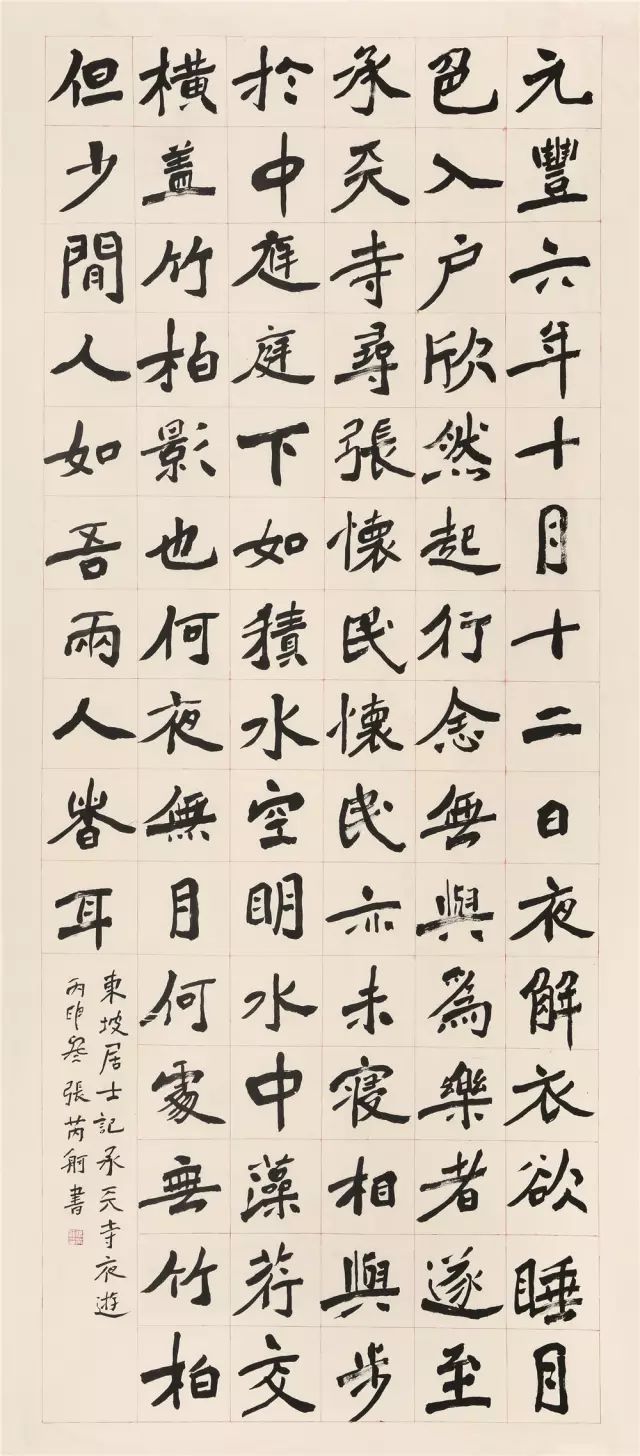 元豐六年十月十二日夜解衣欲睡月
色入户欣然起行念無與為樂者遂至
承天寺尋張懷民懷民亦未寝相與步
於中庭庭下如積水空明水中藻荇交
橫盖竹柏影也何夜無月何處無竹柏
但少閒人如吾兩人者耳
東坡居士記承天寺夜遊
丙申張芮書